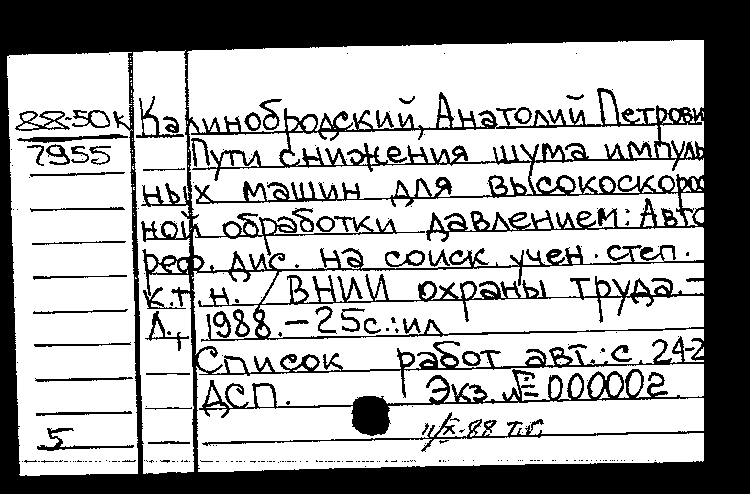 88-50к Калинобродский, Анатолий Петрови
7955 Пути снижения шума импуль
ных машин для высокоскорос
ной обработки давлением: Авто
реф. дис. на соиск. учен. степ.
к.т.н. / ВНИИ охраны труда.-
Л., 1988.-25с.:ил
Список работ авт.: с. 24-2
ДСП. Экз. № 000002.
5 11/X-88 т.г.